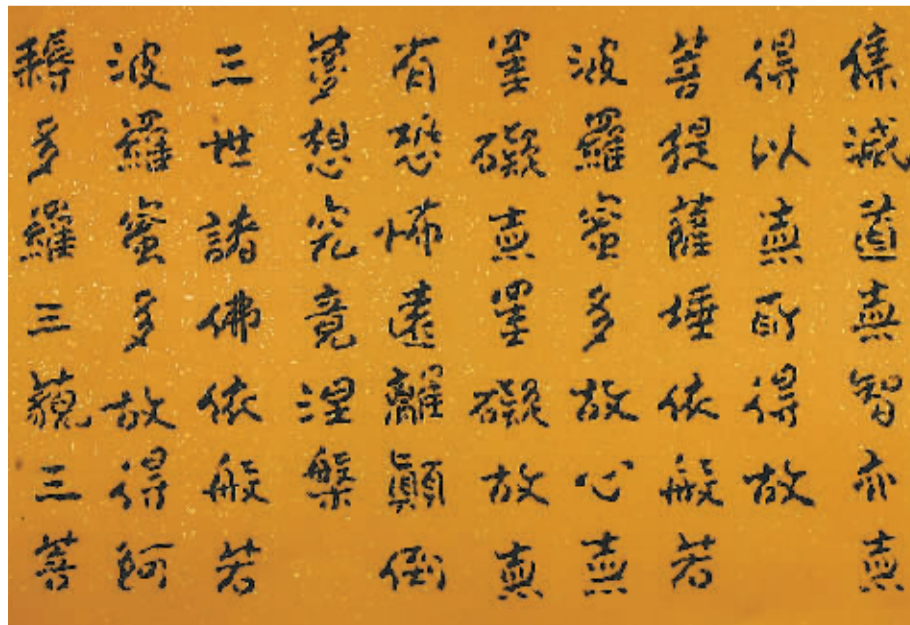 集滅道無智亦無
得以無所得故
菩提薩埵依般若
波羅蜜多故心無
罣礙無罣礙故無
有恐怖遠離顛倒
夢想究竟涅槃
三世諸佛依般若
波羅蜜多故得阿
耨多羅三藐三菩